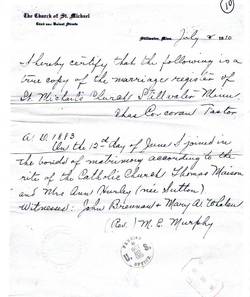 10
The Church of St. Michael
Third and Walnut Streets
Stillwater, Minn. July 2 1910
I hereby certify that the following is a
true copy of the marriage register of
St. Michael's Church Stillwater Minn
Chas Corcoran Pastor
A.D. 1883
On the 12th day of June I joined
in the bonds of matrimony according to the
rite of the Catholic Church Thomas
and Mrs Ann Hurley (née Sutton)
Witnesses: John Brennan & Mary A.
(Rev.) M. E. Murphy